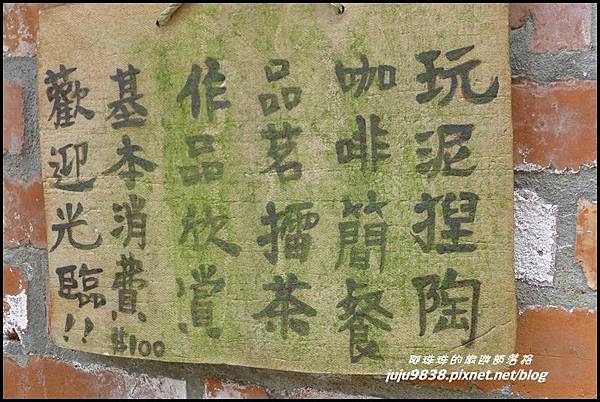 玩泥猩陶
咖啡簡餐
品茗擂茶
作品欣賞
基本消費$100
歡迎光臨!!
珠珠的旅遊部落格
juju9838.pixnet.net/blog